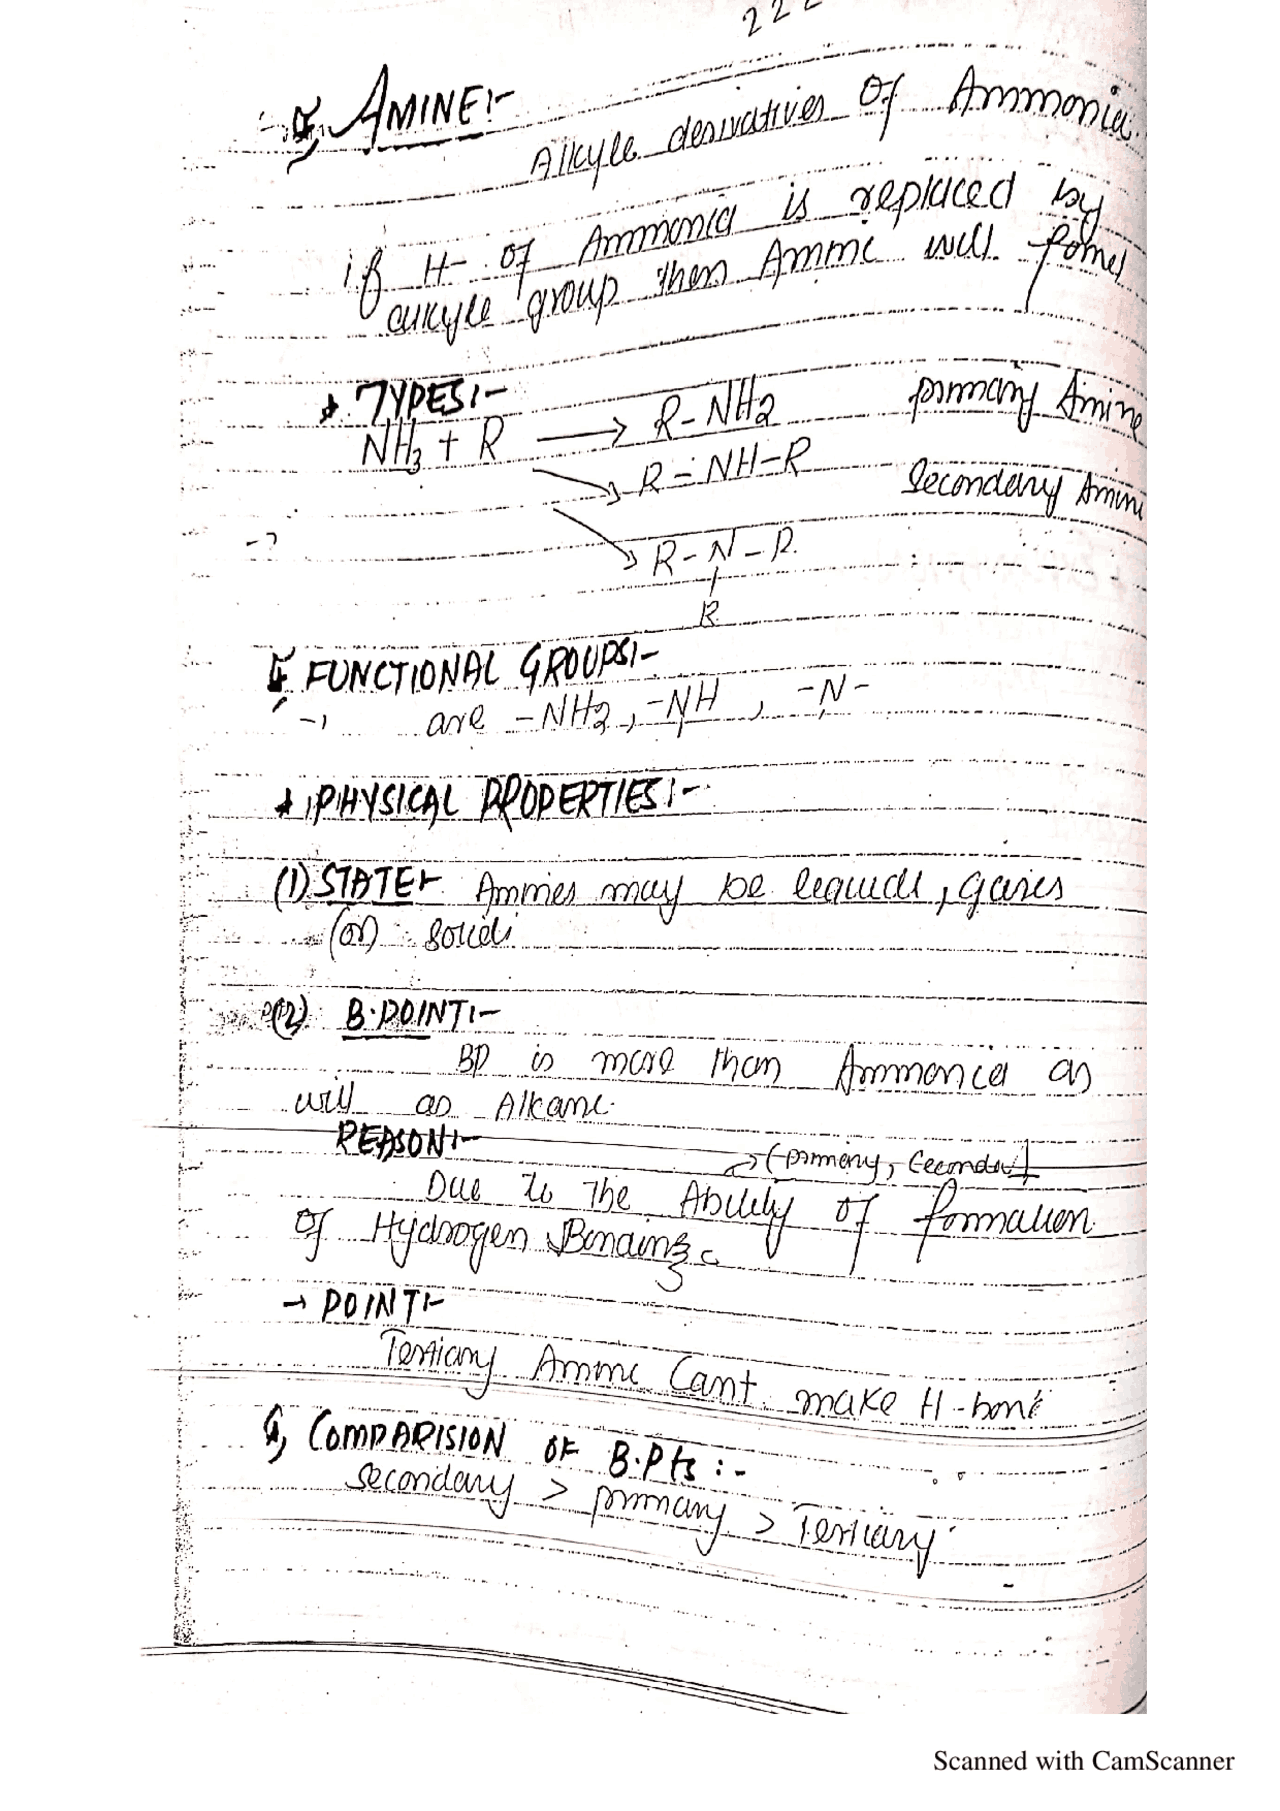 222
AMINE:-
Alkyle derivatives of Ammonia.
if H- of Ammonia is replaced by
alkyle group then Amine will
TYPES:-
NH3 + R → R-NH2 primary Amine
R-NH-R Secondary Amine
R-N-R
R
FUNCTIONAL GROUPS:-
are -NH2, -NH, -N-
PHYSICAL PROPERTIES:-
(1) STATE:- Amines may be liquid, gases
(or) solid
(2) B.POINT:-
BP is more than Ammonia as
will as Alkane.
REASON:-
→(primary, Secondary)
Due to the Ability of formation
of Hydrogen Bonding.
→ POINT:-
Tertiary Amine Cant make H-bond
COMPARISION OF B.Pts:-
Secondary > primary > Tertiary
Scanned with CamScanner